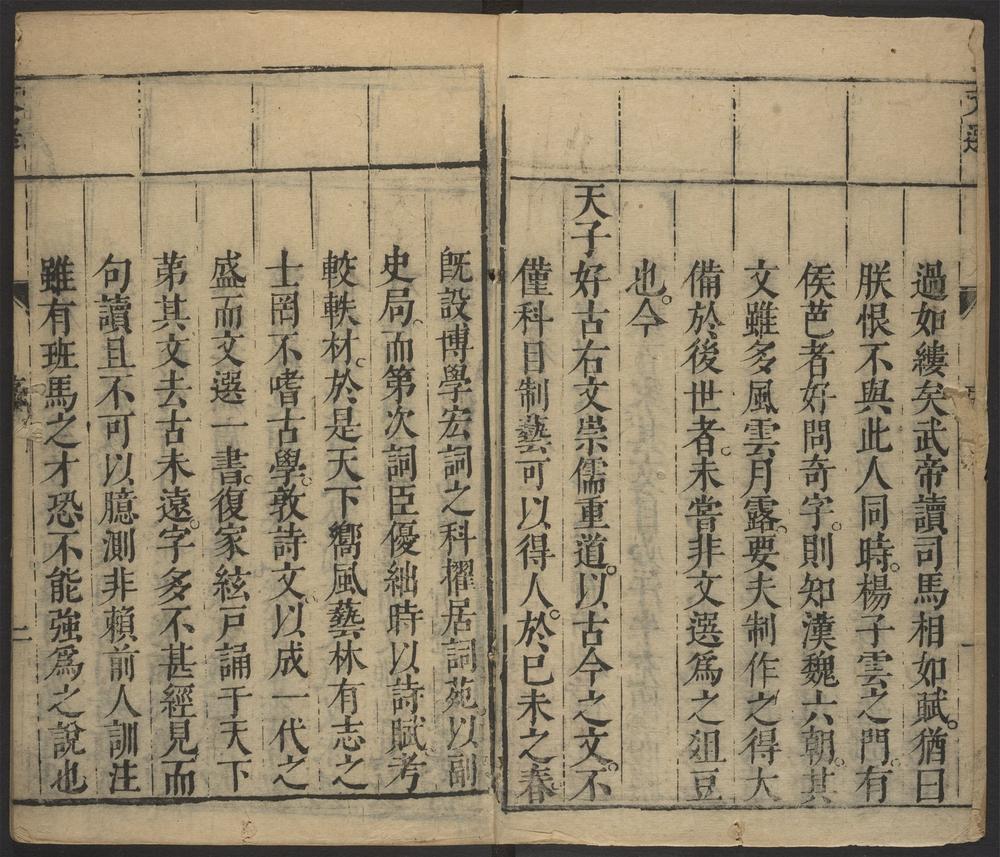 文選
過如縷矣武帝讀司馬相如賦。猶曰
朕恨不與此人同時。楊子雲之門。有
侯芭者好問奇字。則知漢魏六朝。其
文雖多風雲月露。要夫制作之得大
備於後世者。未嘗非文選爲之俎豆
也。今
天子好古右文崇儒重道。以古今之文。不
僅科目制藝可以得人。於巳未之春
旣設博學宏詞之科擢居詞苑。以副
史局。而第次詞臣優絀時以詩賦考
較軼材。於是天下嚮風藝林有志之
士罔不嗜古學。敦詩文。以成一代之
盛而文選一書。復家絃戸誦于天下
第其文去古未遠。字多不甚經見而
句讀且不可以臆測非賴前人訓注
雖有班馬之才恐不能強爲之說也
二